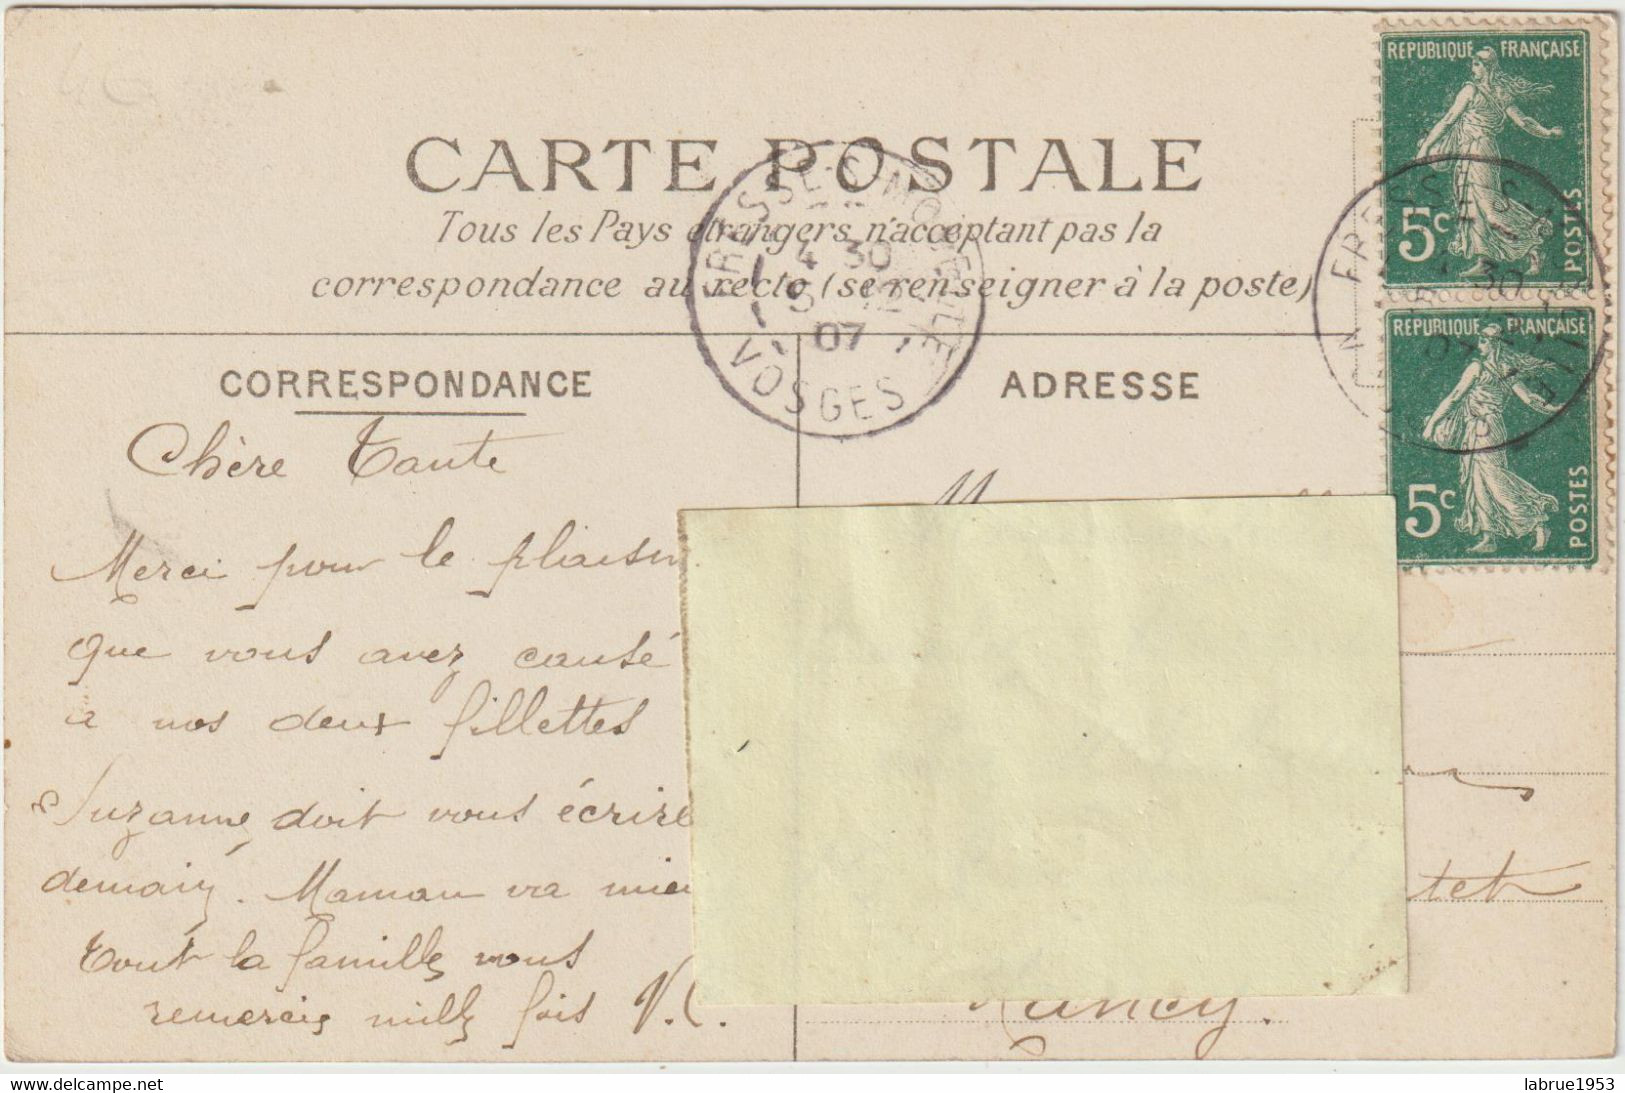 REPUBLIQUE FRANÇAISE
5c POSTES
REPUBLIQUE FRANÇAISE
5c POSTES
CARTE POSTALE
Tous les Pays étrangers n'acceptant pas la
correspondance au recto (se renseigner à la poste)
FRESSE-S-MOSELLE
4 30
12
07
VOSGES
CORRESPONDANCE
ADRESSE
Chère Tante
Merci pour le plaisir
que vous avez causé
à nos deux fillettes
Suzanne doit vous écrire
demain. Maman va
Tout la famille vous
remercie mille fois
Nancy.
www.delcampe.net
labrue1953